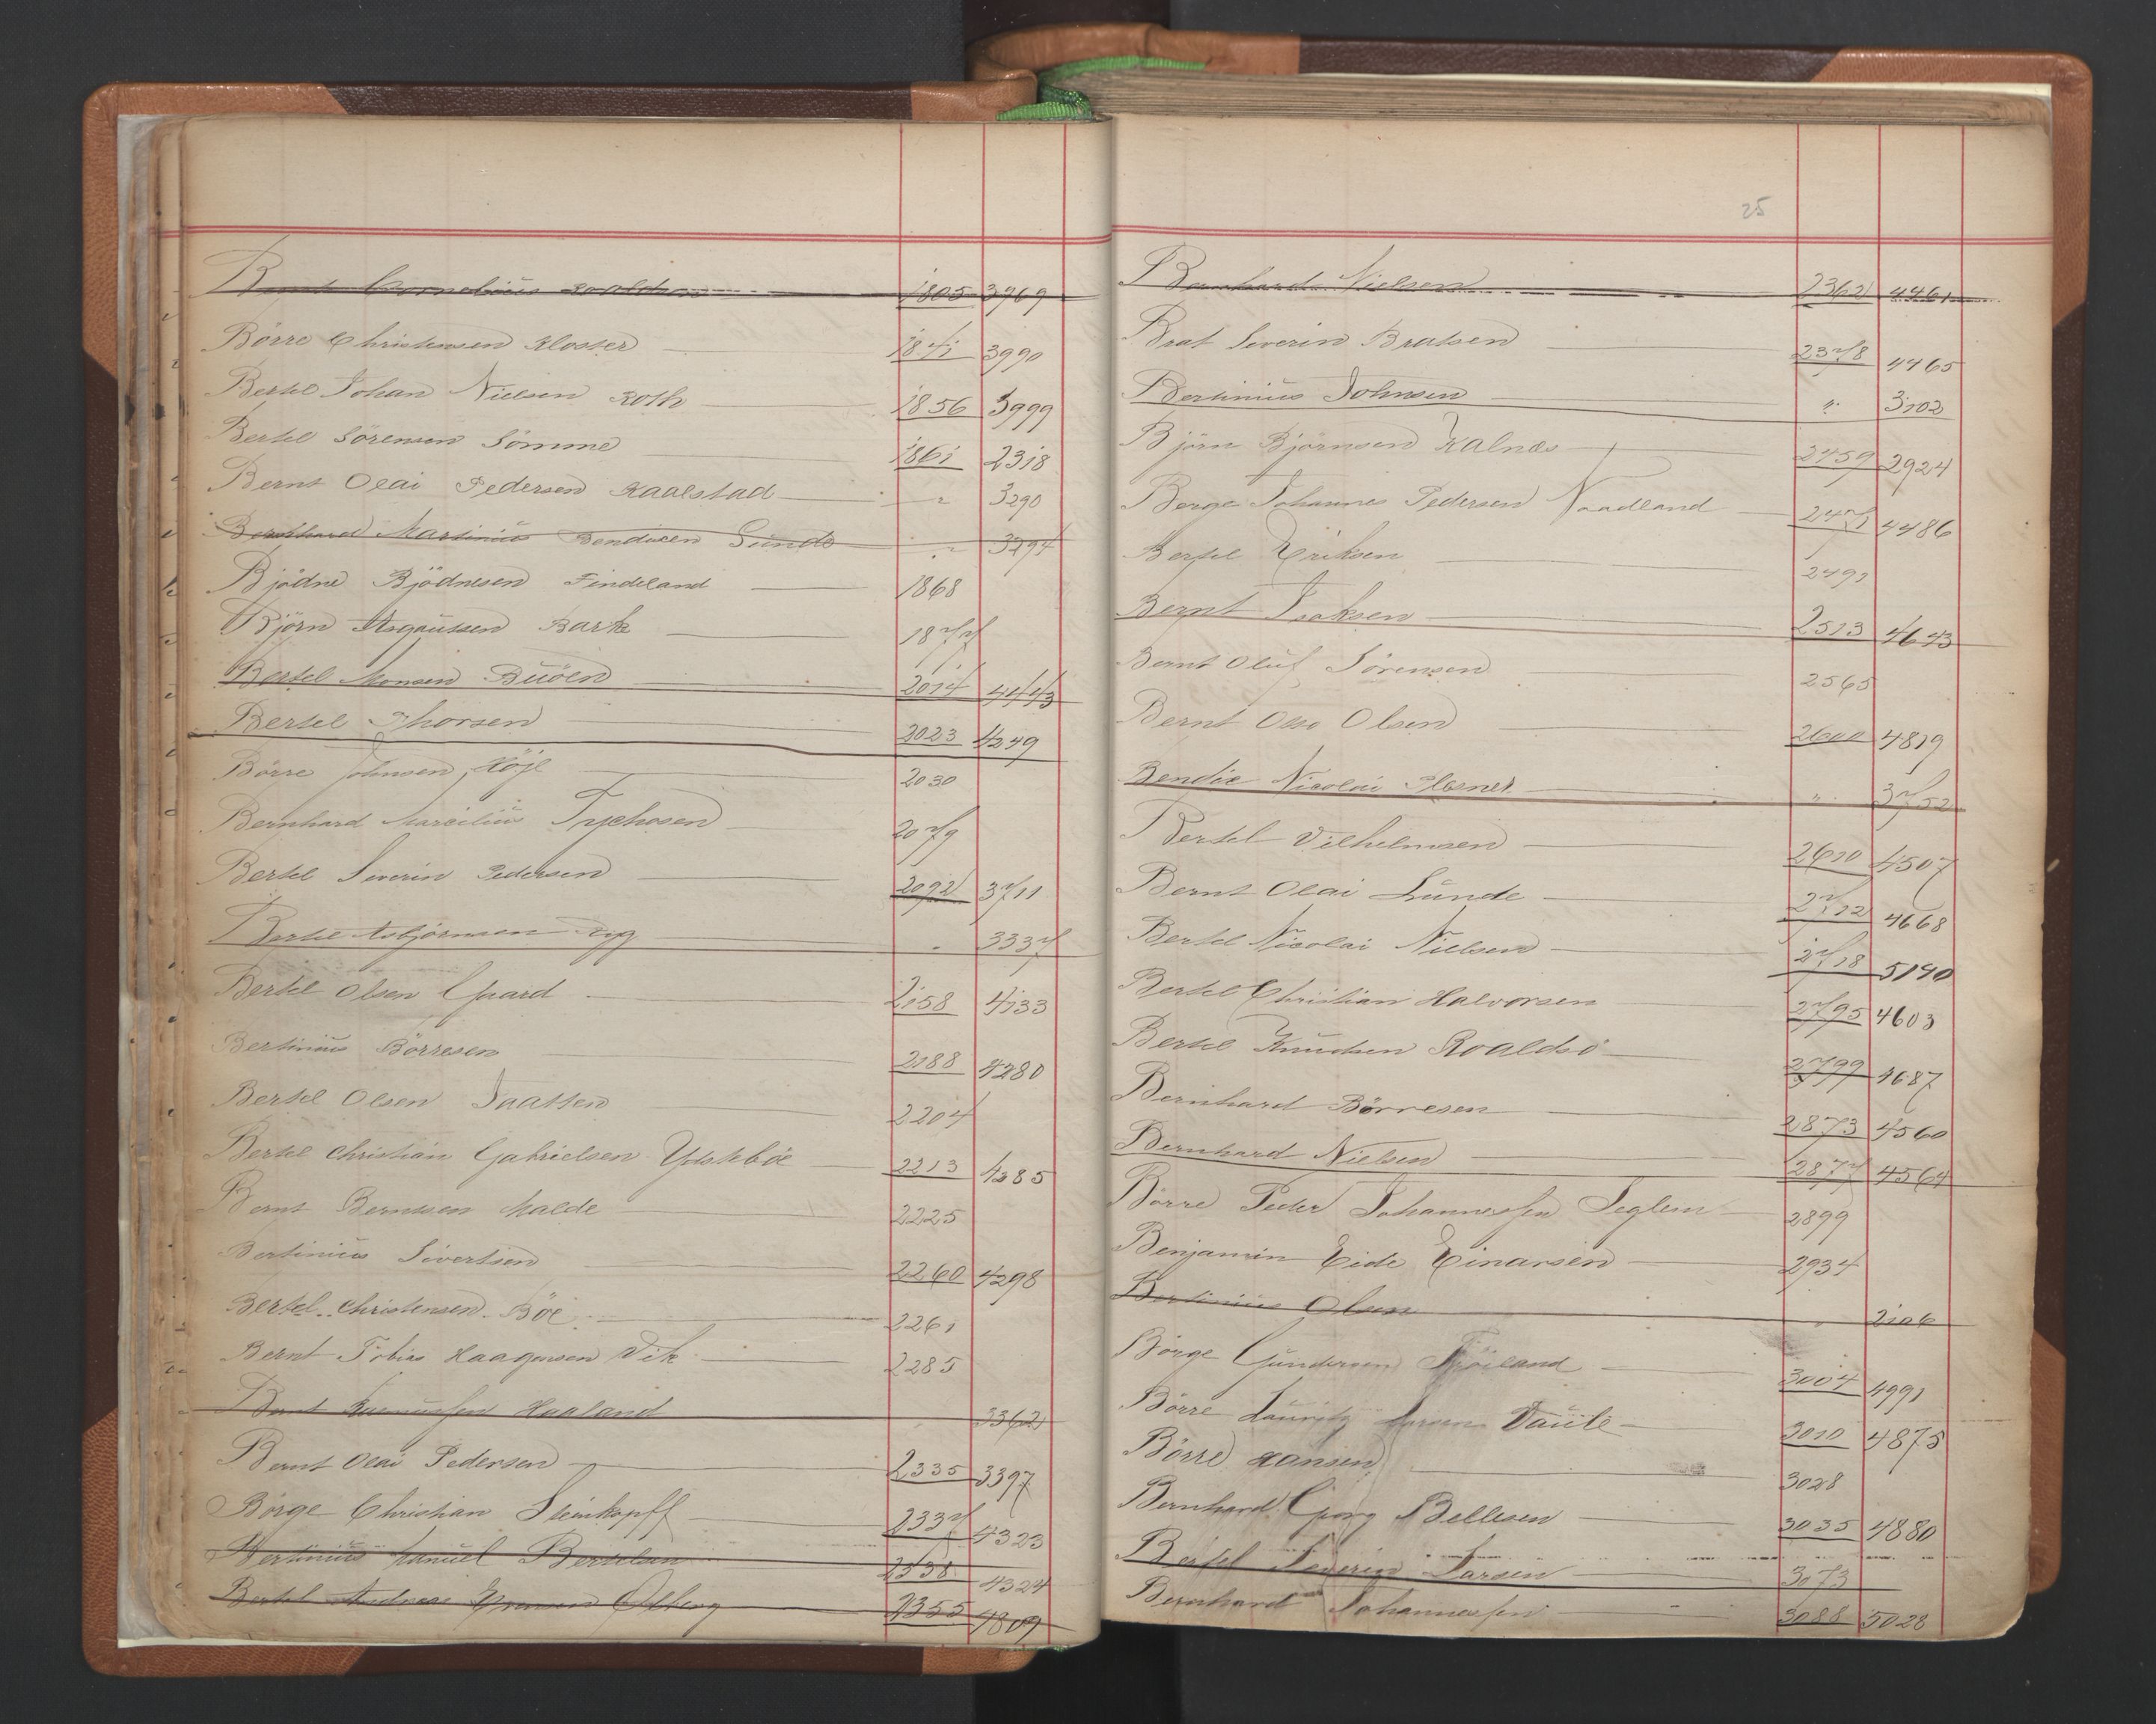 Bernt Cornelius Roaldsen 1805 3969
Börre Christensen Kloster 1841 3990
Bertel Johan Nielsen Roth 1856 3999
Bertel Sörensen Sömme 1861 2318
Bernt Olai Pedersen Raalstad " 3290
Bernhard Martinius Bendixen Sunde " 3294
Bjödne Bjödnesen Findeland 1868
Björn Asgautsen Bark 1877
Bertel Monsen Buöen 2014 4443
Bertel Thorsen 2023 4249
Börre Johnsen Höje 2030
Bernhard Marcilius Tychosen 2079
Bertel Severin Pedersen 2092 3711
Bertel Asbjörnsen " 3337
Bertel Olsen Gaard 2158 4133
Bertinius Börresen 2188 4280
Bertel Olsen Taatten 2204
Bertel Christian Gabrielsen Ydstebøe 2213 4285
Bernt Berntsen Malde 2225
Bertinius Sivertsen 2260 4298
Bertel Christensen Böe 2261
Bernt Tobias Haagensen Vik 2285
Bernt Rasmussen Haaland 3362
Bernt Olai Pedersen 2335 3397
Börge Christian Steinkopff 2337 4323
Bertinius Manuel Bertelsen 2338 4324
Bertel Andreas 2355 4809
25
Bernhard Nielsen 2362 4461
Brat Severin Bratsen 2378 4465
Bertinius Johnsen " 3102
Björn Björnsen Kalnæs 2459 2924
Börge Johannes Pedersen Naadland 2471 4486
Bertel Eriksen 2491
Bernt Isaksen 2513 4643
Bernt Oluf Sörensen 2565
Bernt Olsen 2600 4819
Bendix Nicolai " 3752
Bertel Vilhelmsen 2610 4507
Bernt Olai Lunde 2712 4668
Bertel Nicolai Nielsen 2718 5140
Bertel Christian Halvorsen 2795 4603
Bertel Knudsen Roaldsö 2799 4687
Bernhard Börresen 2873 4560
Bernhard Nielsen 2877 4564
Börre Peder Johannessen Seglem 2899
Benjamin Eide Einarsen 2934
Bertinius Olsen " 2106
Börge Gundersen Fröiland 3004 4991
Börre Lauritz Larsen Taule 3010 4875
Börre Hansen 3028
Bernhard Georg Bellesen 3035 4880
Bertel Severin Larsen 3073
Bernhard Johannessen 3088 5028